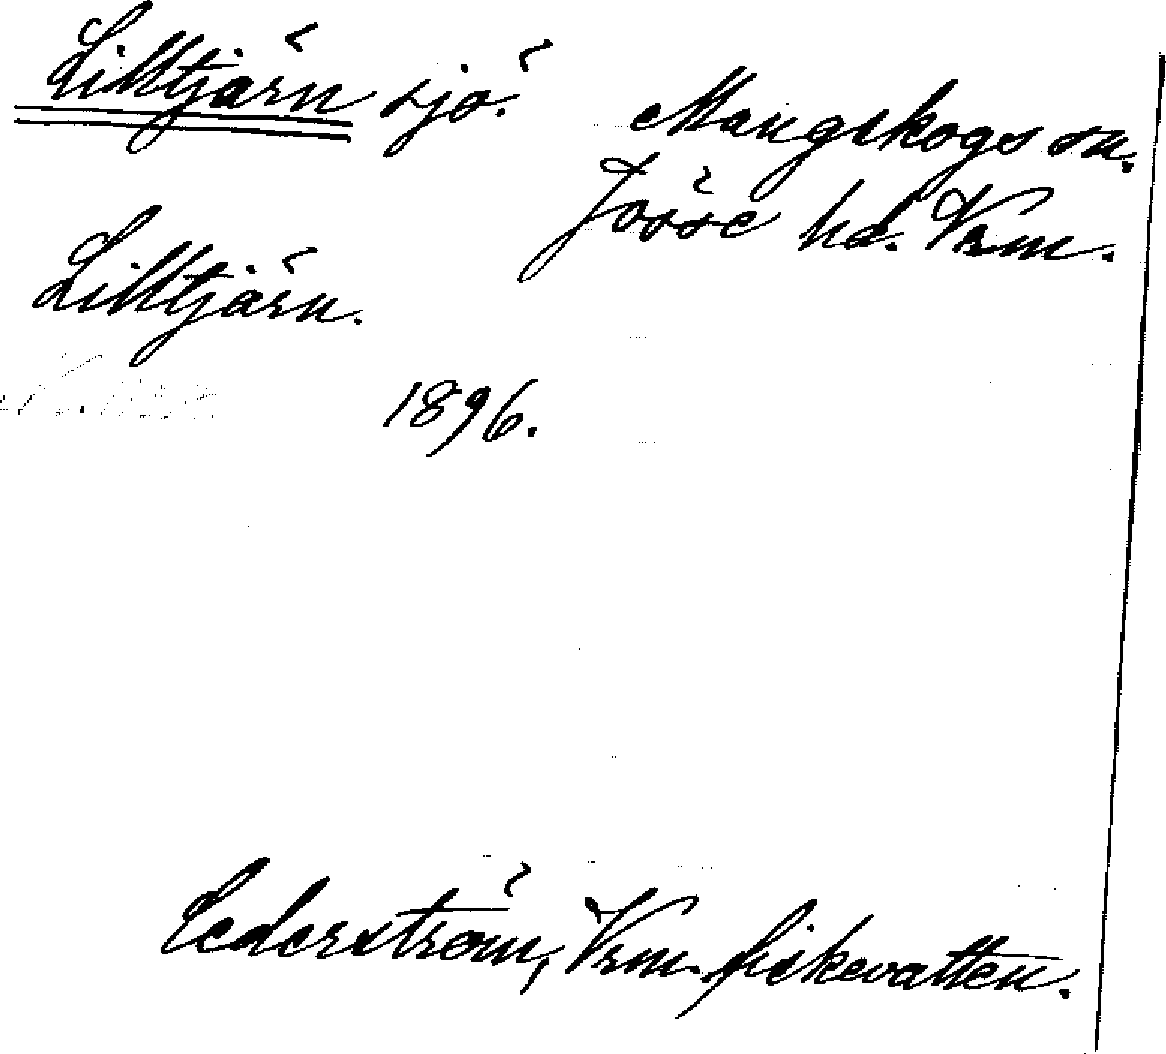 Lilltjärn sjö.
Mangskogs sn.
Jösse hd. Vrm.
Lilltjärn.
1896.
Cederström, Vrm. fiskevatten.